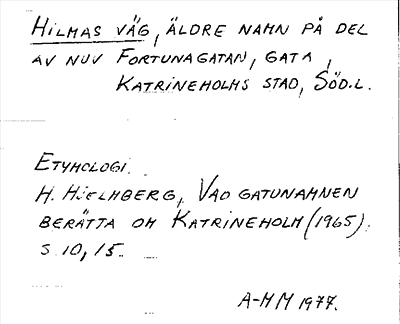 HILMAS VÄG, ÄLDRE NAMN PÅ DEL
AV NUV FORTUNAGATAN, GATA,
KATRINEHOLMS STAD, SÖD.L.
ETYMOLOGI.
H. HJELMBERG, VAD GATUNAMNEN
BERÄTTA OM KATRINEHOLM (1965).
S. 10, 15.
A-HM 1977.